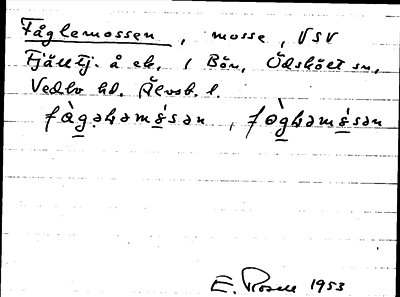 Fåglemossen, mosse, VSV
Fjälltj. å ek. 1 Bön, Ödsköet sn,
Vedbo hd. Älvsb. l.
E. Rosell 1953